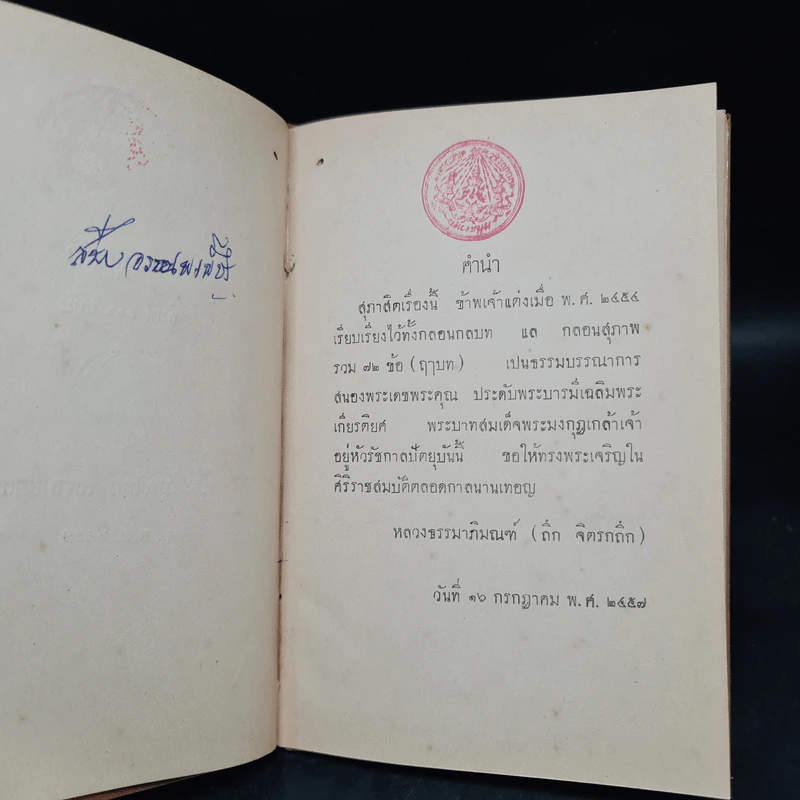 คำนำ
สุภาสิตเรื่องนี้ ข้าพเจ้าแต่งเมื่อ พ.ศ. ๒๔๕๔
เรียบเรียงไว้ทั้งกลอนกลบท แล กลอนสุภาพ
รวม ๗๒ ข้อ (ฤๅบท) เปนธรรมบรรณาการ
สนองพระเดชพระคุณ ประดับพระบารมีเฉลิมพระ
เกียรติยศ พระบาทสมเด็จพระมงกุฎเกล้าเจ้า
อยู่หัวรัชกาลปัตยุบันนี้ ขอให้ทรงพระเจริญใน
ศิริราชสมบัติตลอดกาลนานเทอญ
หลวงธรรมาภิมณฑ์ (ถึก จิตรกถึก)
วันที่ ๑๖ กรกฎาคม พ.ศ. ๒๔๕๗